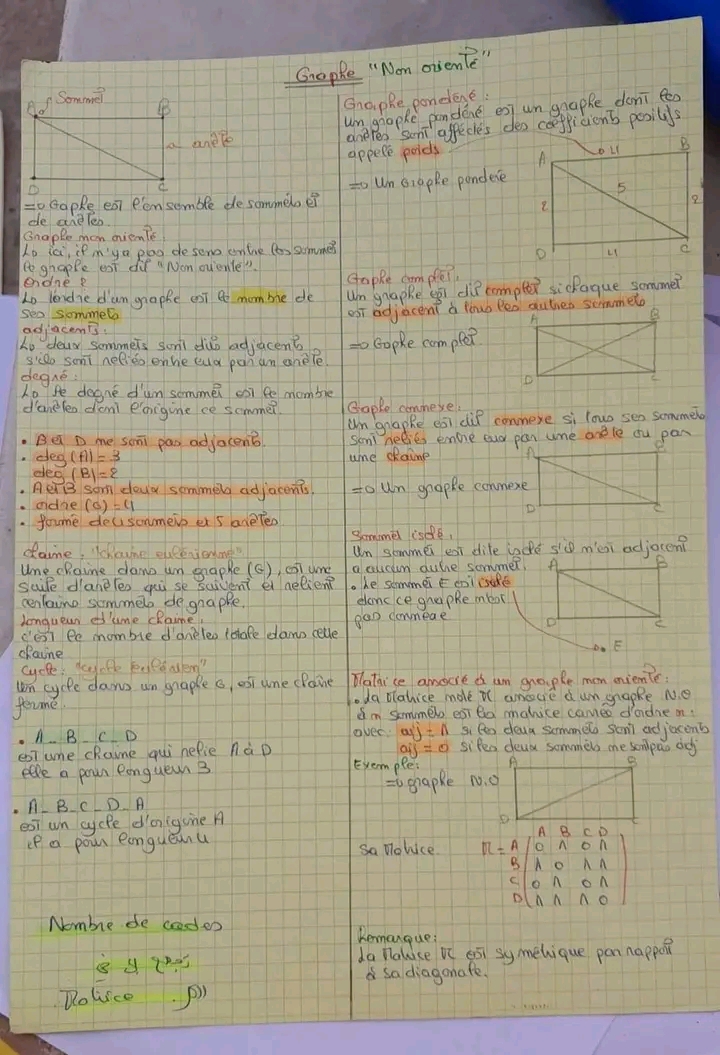 Graphe "Non orienté"
A Sommet B
arête
D C
=> Gaphe est l'ensemble de sommets et
de arêtes.
Graphe non orienté :
Lo ici, il n'ya pas de sens entre les sommet
le graphe est dit "Non orienté".
Ordre :
Lo l'ordre d'un graphe est le nombre de
ses sommets
adjacents :
Lo deux sommets sont dits adjacents
s'ils sont reliés entre eux par un arête.
degré :
Lo le degré d'un sommet est le nombre
d'arêtes dont l'origine ce sommet.
• B et D ne sont pas adjacents.
• deg (A) = 3
deg (B) = 2
• A et B sont deux sommets adjacents.
• ordre (G) = 4
• formé de 4 sommets et 5 arêtes
chaine : "chaine eulérienne"
Une chaine dans un graphe (G), est une
suite d'arêtes qui se suivent et relient
certains sommets de graphe.
Longueur d'une chaine.
c'est le nombre d'arêtes totale dans cette
chaine
Cycle : "cycle Eulérien"
Un cycle dans un graphe G, est une chaine
fermé.
• A _ B _ C _ D
est une chaine qui relie A à D
elle a pour longueur 3
• A _ B _ C _ D _ A
est un cycle d'origine A
il a pour longueur 4
Nombre de
Matrice
Graphe pondéré :
Un graphe pondéré est un graphe dont les
arêtes sont affectés des coefficients positifs
appelé poids
=> Un Graphe pondéré
A 4 B
2 5 2
D 4 C
Gaphe complet.
Un graphe est dit complet si chaque sommet
est adjacent à tous les autres sommets
=> Gaphe complet
A B
D C
Gaphe connexe.
Un graphe est dit connexe si tous ses sommets
sont reliés entre eux par une arête ou par
une chaine
=> Un graphe connexe
A
D C
Sommet isolé.
Un sommet est dite isolé s'il n'est adjacent
a aucun autre sommet.
• Le sommet E est isolé
donc ce graphe n'est
pas connexe
A B
D C
E
Matrice associé à un graphe non orienté :
• La Matrice noté M associé à un graphe N.O
à n sommets est la matrice carrée d'ordre n :
avec : aij = 1 si les deux sommets sont adjacents
aij = 0 si les deux sommets ne sont pas adj
Exemple :
=> graphe N.O
A B
D
A B C D
sa Matrice. M = A 0 1 0 1
B 1 0 1 1
C 0 1 0 1
D 1 1 1 0
Remarque :
La Matrice M est symétrique par rapport
à sa diagonale.